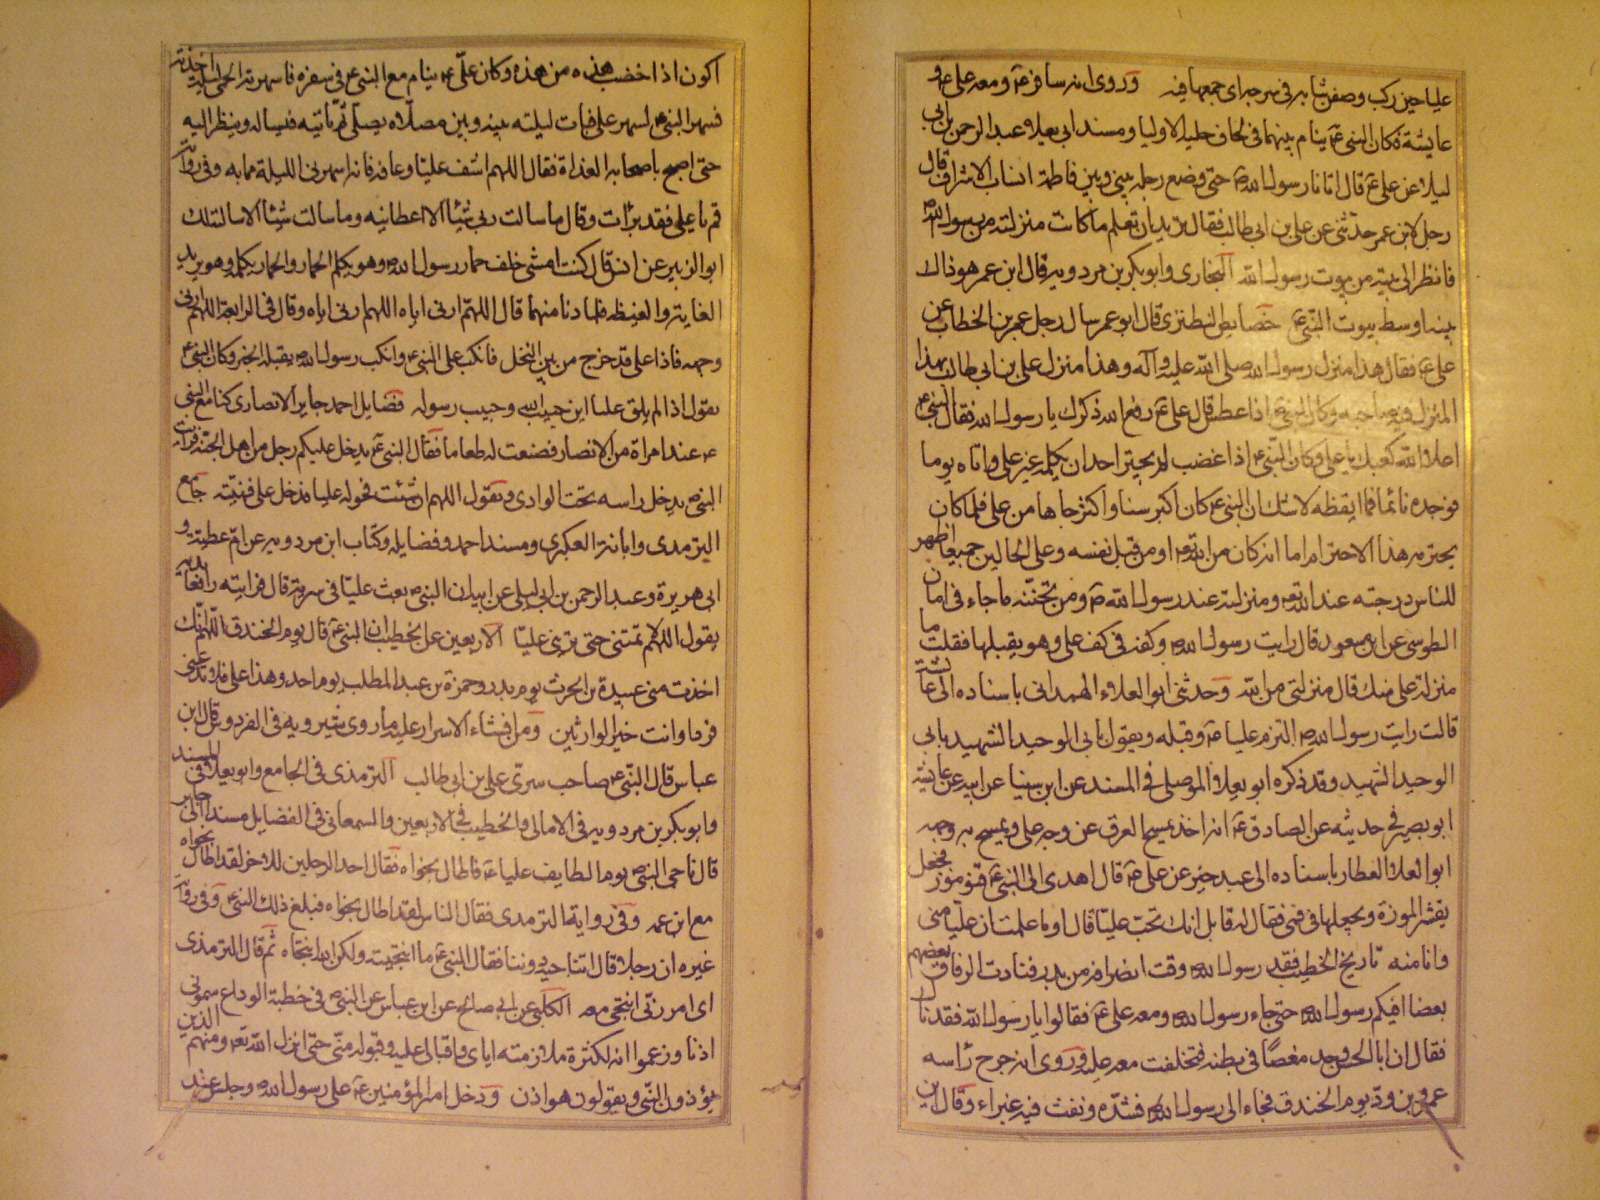 عليا حين ركب وصفن ثيابه في سرجه اى جمعها فيه وروى انه سافر ع ومعه على ع و
عايشة فكان النبي ع ينام بينهما في لحاف حلية الاوليا ومسند ابي يعلا عبد الرحمن بن ابي
ليلا عن على ع قال اتانا رسول الله ص حتى وضع رجله بيني وبين فاطمة انساب الاشراف قال
رجل لابن عمر حدثني عن على بن ابي طالب فقال تريد ان تعلم ما كانت منزلته من رسول الله ص
فانظر الى بيته من بيوت رسول الله البخارى وابو بكر بن مردويه قال ابن عمر هو ذاك
بيته اوسط بيوت النبي ع خصايص النطنزى قال ابو عمر سال رجل عمر بن الخطاب عن
على ع فقال هذا منزل رسول الله صلى الله عليه وآله وهذا منزل على بن ابي طالب بهذا
المنزل فيه صاحبه وكان النبي ع اذا عطس قال على ع رفع الله ذكرك يا رسول الله فقال النبي ع
اعلا الله كعبك يا على وكان النبي ع اذا غضب لم يجتر احد ان يكلمه غير على واتاه يوما
فوجده نائما فما ايقظه لا شك ان النبي ع كان اكبر سنا واكثر جاها من على فلما كان
يحترمه هذا الاحترام اما انه كان من الله تع او من قبل نفسه وعلى الحالين جميعا اظهر
للناس درجته عند الله تع ومنزلته عند رسول الله ص ومن تحننه ما جاء في امالى
الطوسى عن ابن مسعود قال رايت رسول الله ص وكفه في كف على وهو يقبلها فقلت ما
منزلة على منك قال منزلتى من الله وحدثنى ابو العلاء الهمدانى باسناده الى عائشة
قالت رايت رسول الله ص التزم عليا ع وقبله ويقول بابى الوحيد الشهيد بابى
الوحيد الشهيد وقد ذكره ابو يعلا الموصلى في المسند عن ابن مينا عن ابيه عن عايشة
ابو بصير في حديثه عن الصادق ع انه اخذ يمسح العرق عن وجه على ويمسح به وجهه
ابو العلا العطار باسناده الى عبد خير عن على ع قال اهدى الى النبي ع قنو موز فجعل
يقشر الموزة ويجعلها في فمى فقال له قايل انك تحب عليا قال اوما علمت ان عليا منى
وانا منه تاريخ الخطيب فقد رسول الله ص وقت انصرافه من بدر فنادت الرفاق بعضهم
بعضا افيكم رسول الله ص حتى جاء رسول الله ص ومعه على ع فقالوا يا رسول الله فقدناك
فقال ان ابا الحسن وجد مغصا في بطنه فتخلفت معه عليه وروى انه جرح رأسه
عمرو بن ود يوم الخندق فجاء الى رسول الله ص فشده ونفث فيه فبراء وقال اين
اكون اذا خضب هذه من هذه وكان على ع ينام مع النبي ع في سفره فاسهرته الحمى ليلة اخذته
فسهر النبي ص لسهر على فبات ليلته بينه وبين مصلاه يصلى ثم ياتيه فيساله وينظر اليه
حتى اصبح باصحابه الغداة فقال اللهم اشف عليا وعافه فانه اسهرنى الليلة مما به وفى رواية
قم يا على فقد برات وقال ما سالت ربى شيئا الا اعطانيه وما سالت شيئا الا سالت لك
ابو الزبير عن انس قال كنت امشى خلف حمار رسول الله ص وهو يكلم الحمار والحمار يكلمه وهو يريد
الغابة والغيظة فلما دنا منهما قال اللهم ارنى اياه اللهم ارنى اياه وقال في الرابعة اللهم ارنى
وجهه فاذا على قد خرج من بين النخل فانكب على النبي ع وانكب رسول الله ص يقبله الخبر وكان النبي ع
يقول اذا لم يلق عليا اين حبيب الله وحبيب رسوله فضايل احمد جابر الانصارى كنا مع النبي
ع عند امراة من الانصار فصنعت له طعاما فقال النبي ع يدخل عليكم رجل من اهل الجنة فرايت
النبي ص يدخل راسه تحت الوادى ويقول اللهم ان شئت فحوله عليا فدخل على فهنيته جامع
الترمذى وابانة العكبرى ومسند احمد وفضايله وكتاب ابن مردويه عن ام عطية و
ابي هريرة وعبد الرحمن بن ابي ليلى عن ابيه ان النبي ص بعث عليا في سرية قال فرايته رافعا يديه
يقول اللهم لا تمتنى حتى ترينى عليا الاربعين عن الخطيب ان النبي ع قال يوم الخندق اللهم انك
اخذت منى عبيدة بن الحرث يوم بدر وحمزة بن عبد المطلب يوم احد وهذا على فلا تدعنى
فردا وانت خير الوارثين ومن افشاء الاسرار عليه ما روى شيرويه في الفردوس قال ابن
عباس قال النبي ع صاحب سرى على بن ابي طالب الترمذى في الجامع وابو يعلا في المسند
وابو بكر بن مردويه في الامالى والخطيب في الاربعين والسمعانى في الفضايل مسندا الى جابر
قال ناجى النبي ص يوم الطايف عليا ع فاطال نجواه فقال احد الرجلين للاخر لقد اطال نجواه
مع ابن عمه وفى رواية الترمذى فقال الناس لقد اطال نجواه فبلغ ذلك النبي ع وفى رواية
غيره ان رجلا قال اتناجيه دوننا فقال النبي ع ما انتجيته ولكن الله انتجاه ثم قال الترمذى
اى امر ربى انتجى معه الكلبى عن ابي صالح عن ابن عباس عن النبي ص في خطبة الوداع سمونى
اذنا وزعموا انه لكثرة ملازمته اياى واقبالى عليه وقبوله منى حتى انزل الله تع ومنهم الذين
يؤذون النبي ويقولون هو اذن ودخل امير المؤمنين ع على رسول الله ص وجلس عند